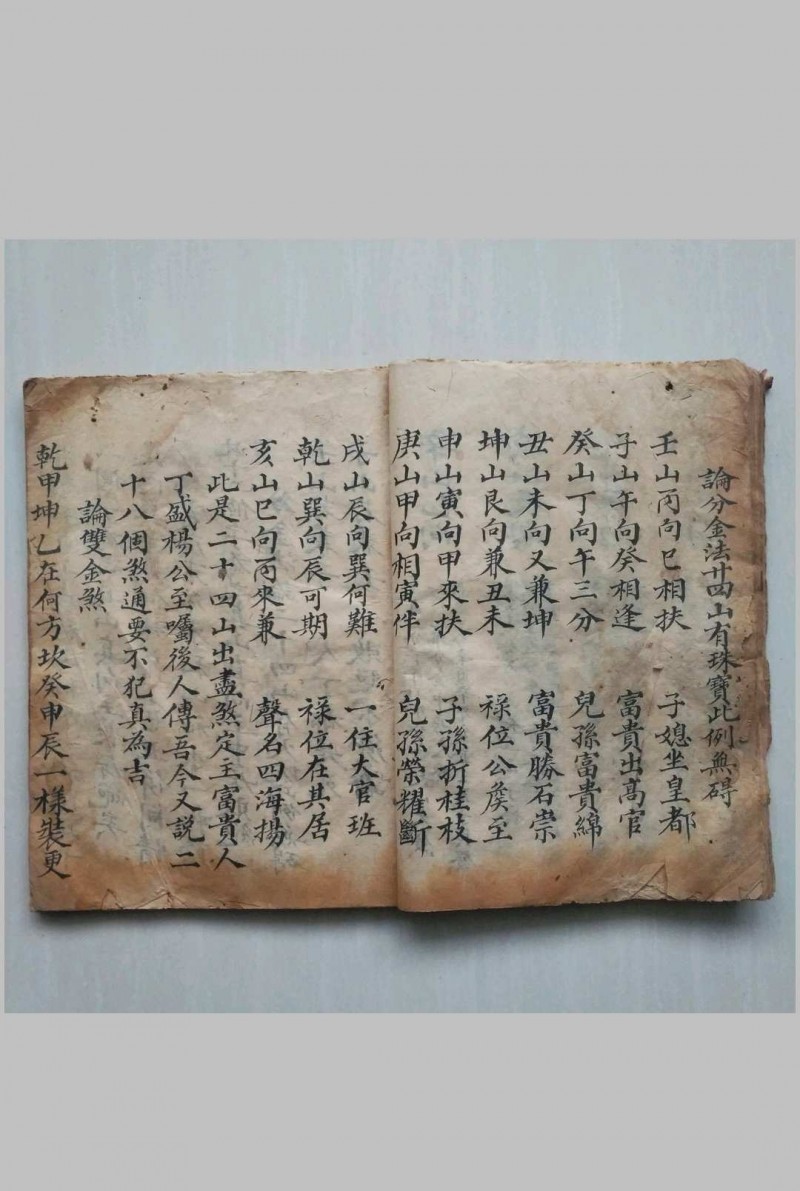 論分金法廿四山有珠寶此例無碍
壬山丙向巳相扶 子媳坐皇都
子山午向癸相逢 富貴出高官
癸山丁向午三分 兒孫富貴綿
丑山未向又兼坤 富貴勝石崇
坤山艮向兼丑未 祿位公矦至
申山寅向甲來扶 子孫折桂枝
庚山甲向相寅伴 兒孫榮耀斷
戌山辰向巽何難 一住大官班
乾山巽向辰可期 祿位在其居
亥山巳向丙來兼 聲名四海揚
此是二十四山出盡煞定主富貴人
丁盛楊公至囑後人傳吾今又説二
十八個煞通要不犯真為吉
論雙金煞
乾甲坤乙在何方坎癸申辰一樣裝更